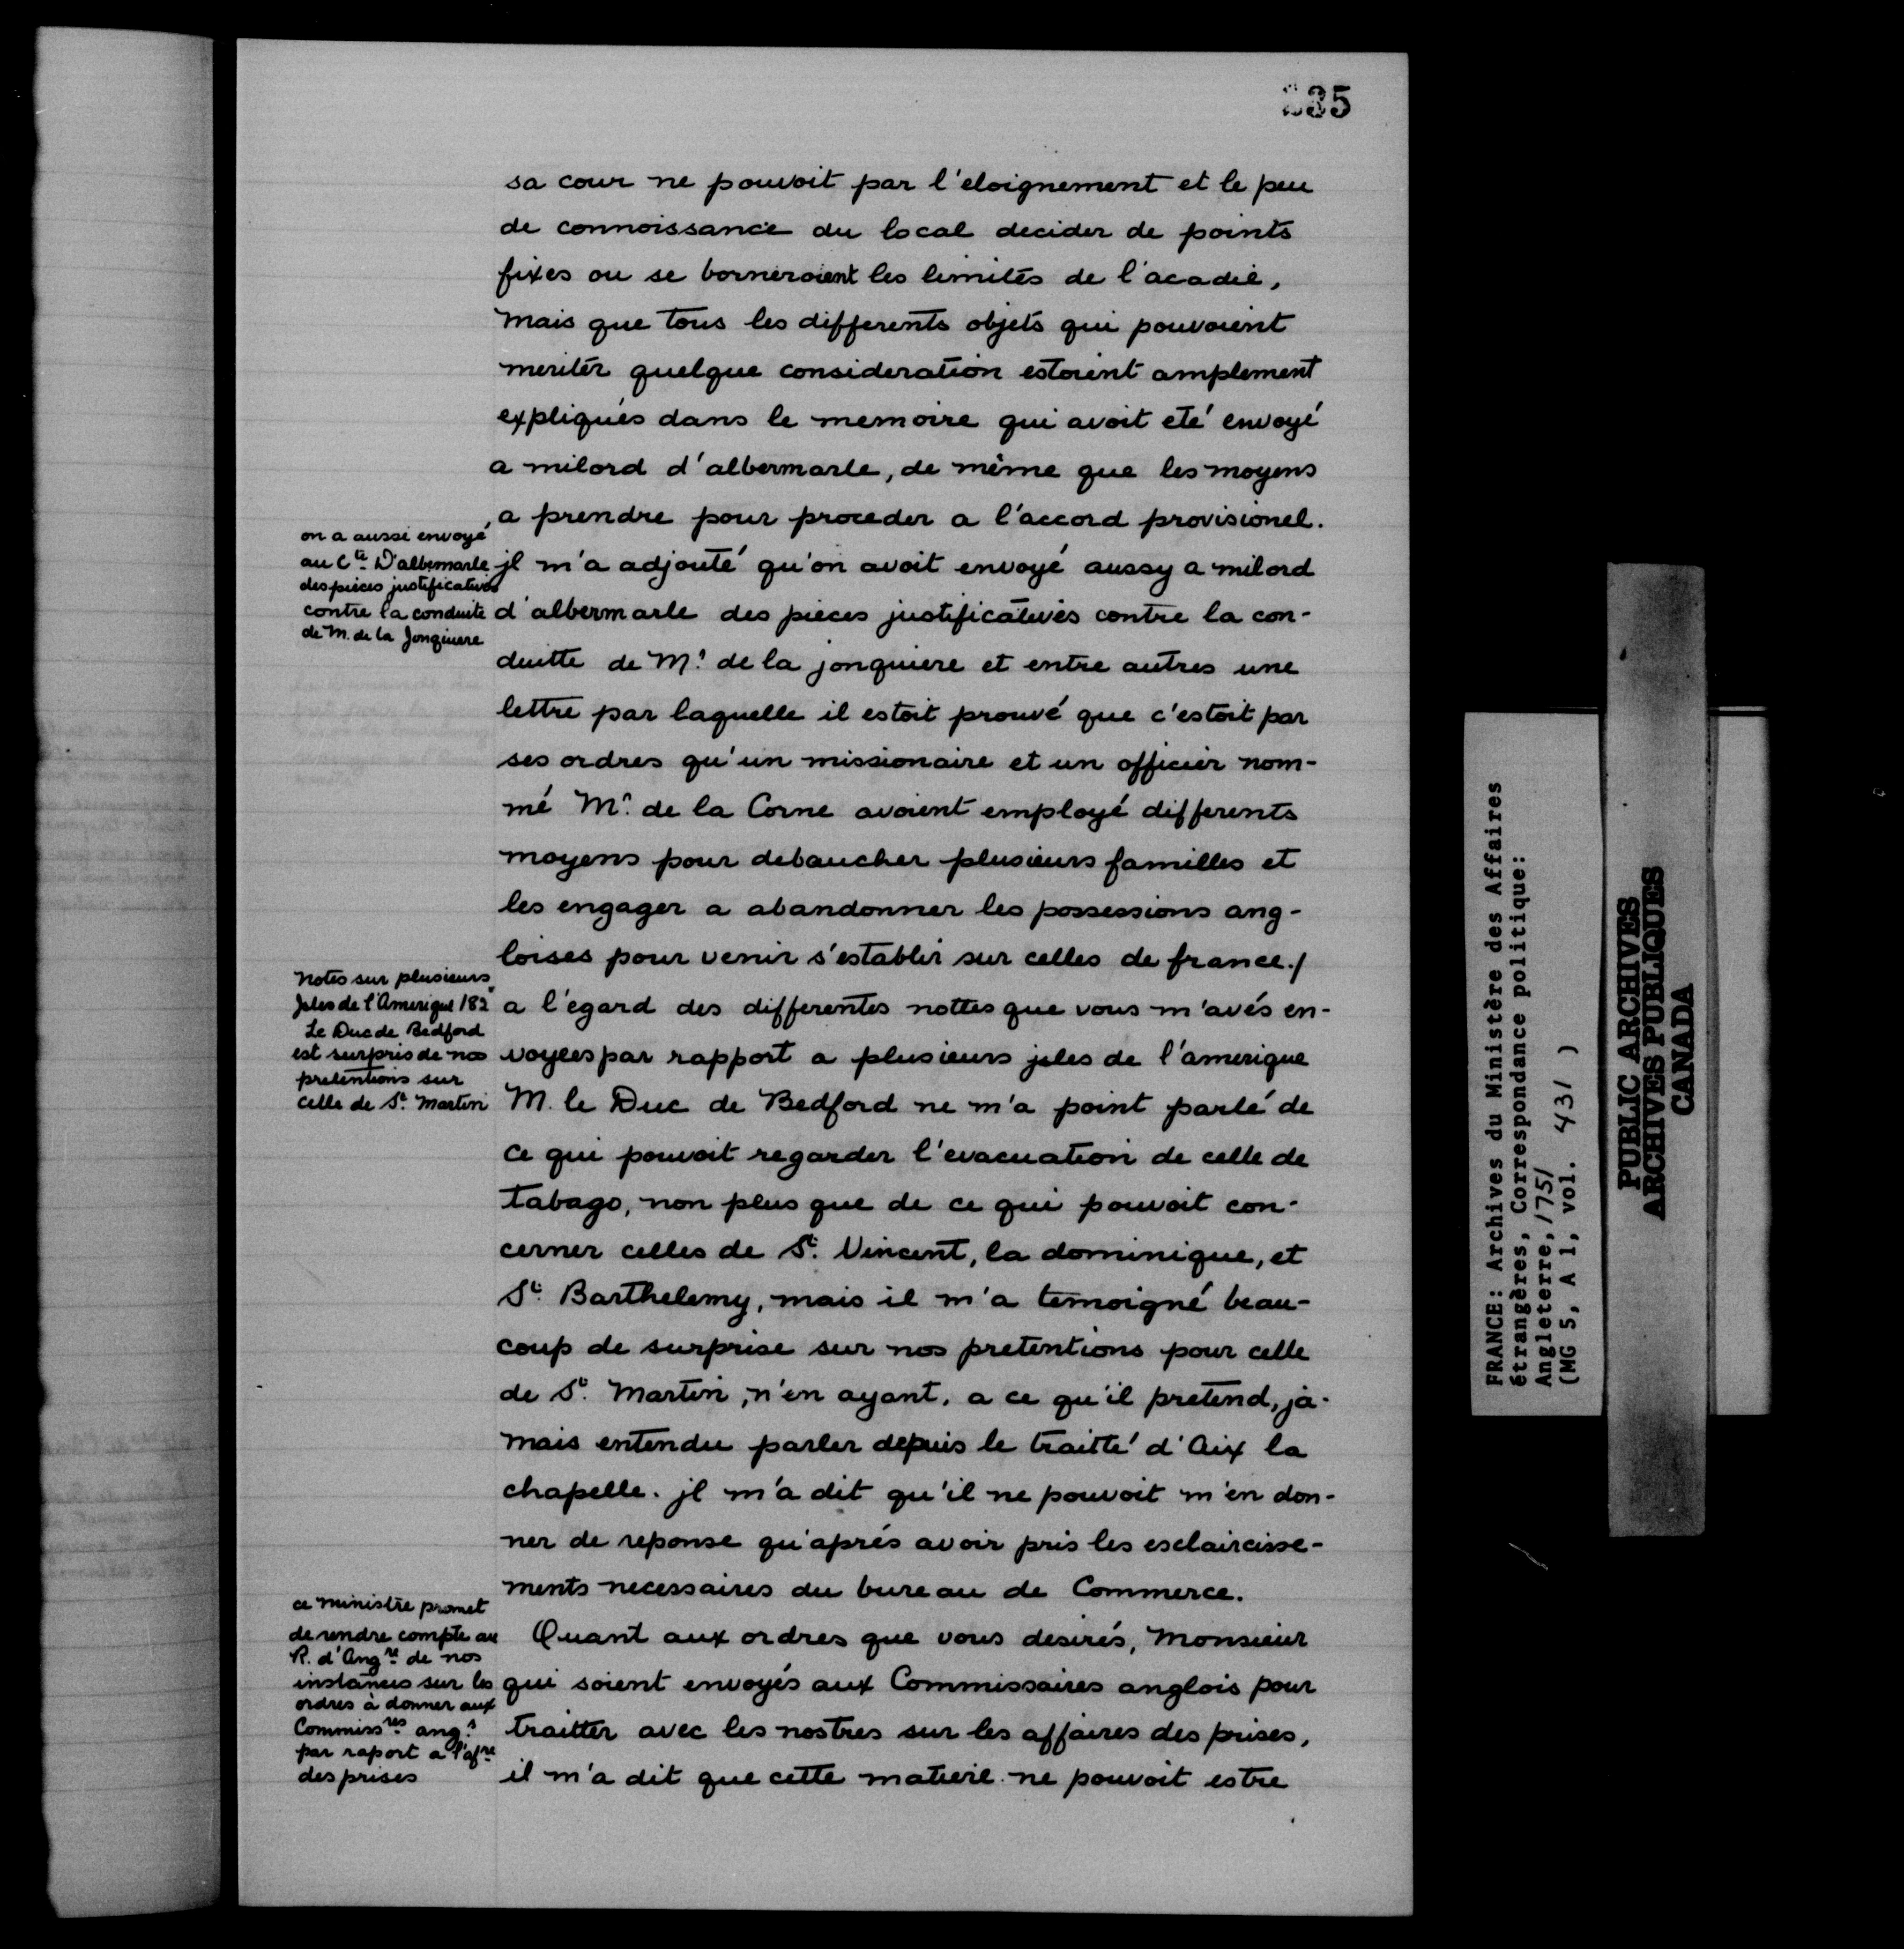 235
sa cour ne pouvoit par l'eloignement et le peu
de connoissance du local decider de points
fixes ou se borneroient les limites de l'acadie,
mais que tous les differents objets qui pouvoient
meriter quelque consideration estoient amplement
expliqués dans le memoire qui avoit eté envoyé
a milord d'albermarle, de même que les moyens
a prendre pour proceder a l'accord provisionel.
on a aussi envoyé
au Cte D'albemarle
des pieces justificatives
contre la conduite
de M. de la Jonquiere
jl m'a adjouté qu'on avoit envoyé aussy a milord
d'albermarle des pieces justificatives contre la con-
duitte de Mr. de la jonquiere et entre autres une
lettre par laquelle il estoit prouvé que c'estoit par
ses ordres qu'un missionaire et un officier nom-
mé Mr. de la Corne avoient employé differents
moyens pour debaucher plusieurs familles et
les engager a abandonner les possessions ang-
loises pour venir s'establir sur celles de france./
notes sur plusieurs
Jsles de l'Amerique 182
Le Duc de Bedford
est surpris de nos
pretentions sur
celle de St. Martin
a l'égard des differentes nottes que vous m'avés en-
voyees par rapport a plusieurs jsles de l'amerique
M. le Duc de Bedford ne m'a point parlé de
ce qui pouvoit regarder l'evacuation de celle de
tabago, non plus que de ce qui pouvoit con-
cerner celles de St. Vincent, la dominique, et
St. Barthelemy, mais il m'a temoigné beau-
coup de surprise sur nos pretentions pour celle
de St. Martin, n'en ayant, a ce qu'il pretend, ja-
mais entendu parler depuis le traitté d'Aix la
chapelle. jl m'a dit qu'il ne pouvoit m'en don-
ner de reponse qu'aprés avoir pris les esclaircisse-
ments necessaires du bureau de Commerce.
ce ministre promet
de rendre compte au
R. d'Angre de nos
instances sur les
ordres à donner aux
Commissres angs
par raport a l'afre
des prises
Quant aux ordres que vous desirés, Monsieur
qui soient envoyés aux Commissaires anglois pour
traitter avec les nostres sur les affaires des prises,
il m'a dit que cette matiere ne pouvoit estre
FRANCE: Archives du Ministère des Affaires
étrangères, Correspondance politique:
Angleterre, 1751
(MG 5, A 1, vol. 431 )
PUBLIC ARCHIVES
ARCHIVES PUBLIQUES
CANADA